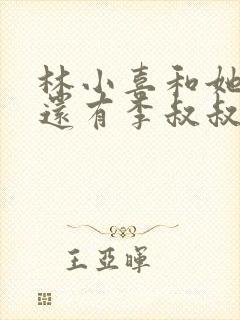 林小喜和她
還有李叔叔
王亞暉